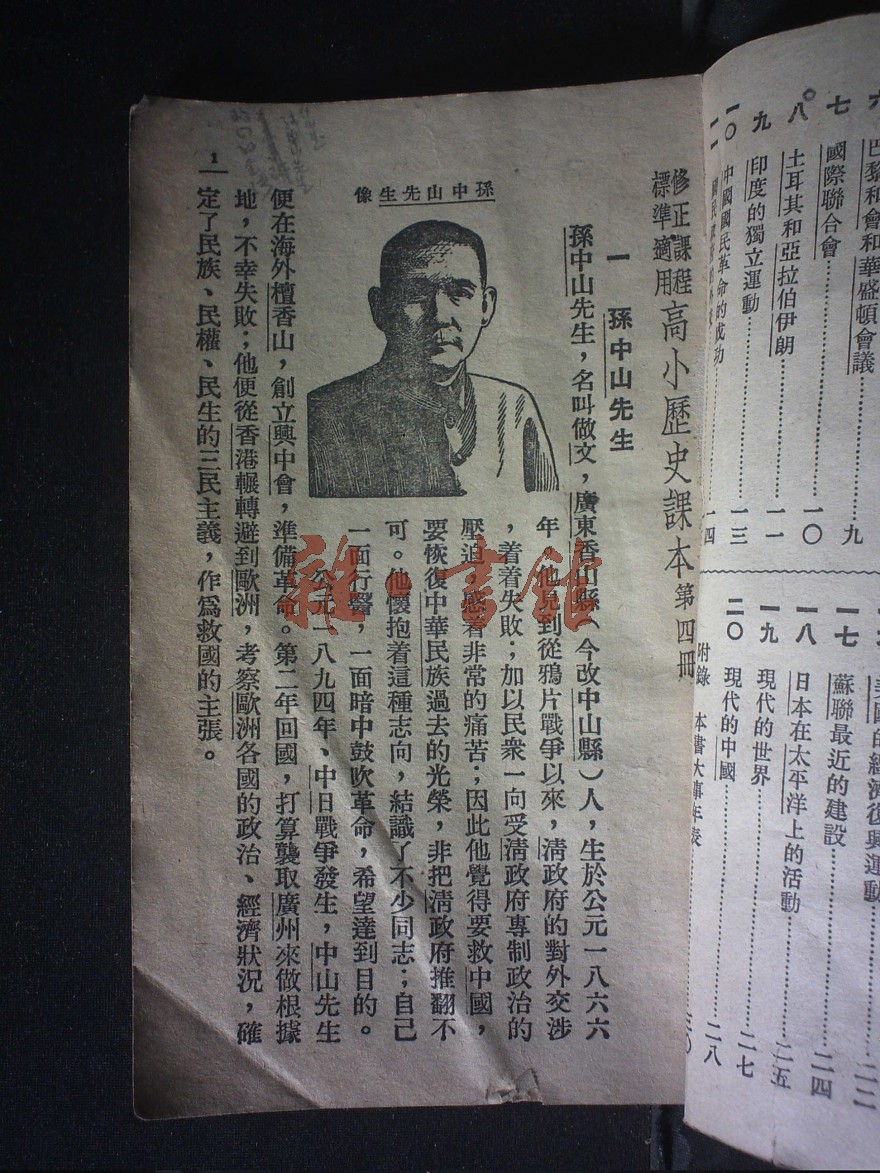 六 巴黎和會和華盛頓會議 九
七 國際聯合會
八 土耳其和亞拉伯伊朗 一〇
九 印度的獨立運動 一一
一〇 中國國民革命的成功 一三
一一 一四
美國的經濟復興運動 二二
一七 蘇聯最近的建設 二四
一八 日本在太平洋上的活動 二五
一九 現代的世界 二七
二〇 現代的中國 二八
附錄 本書大事年表 三〇
修正課程標準適用 高小歷史課本 第四冊
一 孫中山先生
孫中山先生，名叫做文，廣東香山縣（今改中山縣）人，生於公元一八六六
年。他見到從鴉片戰爭以來，清政府的對外交涉
，着着失敗；加以民衆一向受清政府專制政治的
壓迫，感着非常的痛苦；因此他覺得要救中國，
要恢復中華民族過去的光榮，非把清政府推翻不
可。他懷抱着這種志向，結識了不少同志；自己
一面行醫，一面暗中鼓吹革命，希望達到目的。
公元一八九四年、中日戰爭發生，中山先生
孫中山先生像
便在海外檀香山，創立興中會，準備革命。第二年回國，打算襲取廣州來做根據
地，不幸失敗；他便從香港輾轉避到歐洲，考察歐洲各國的政治、經濟狀況，確
定了民族、民權、民生的三民主義，作爲救國的主張。
1
雜·書館